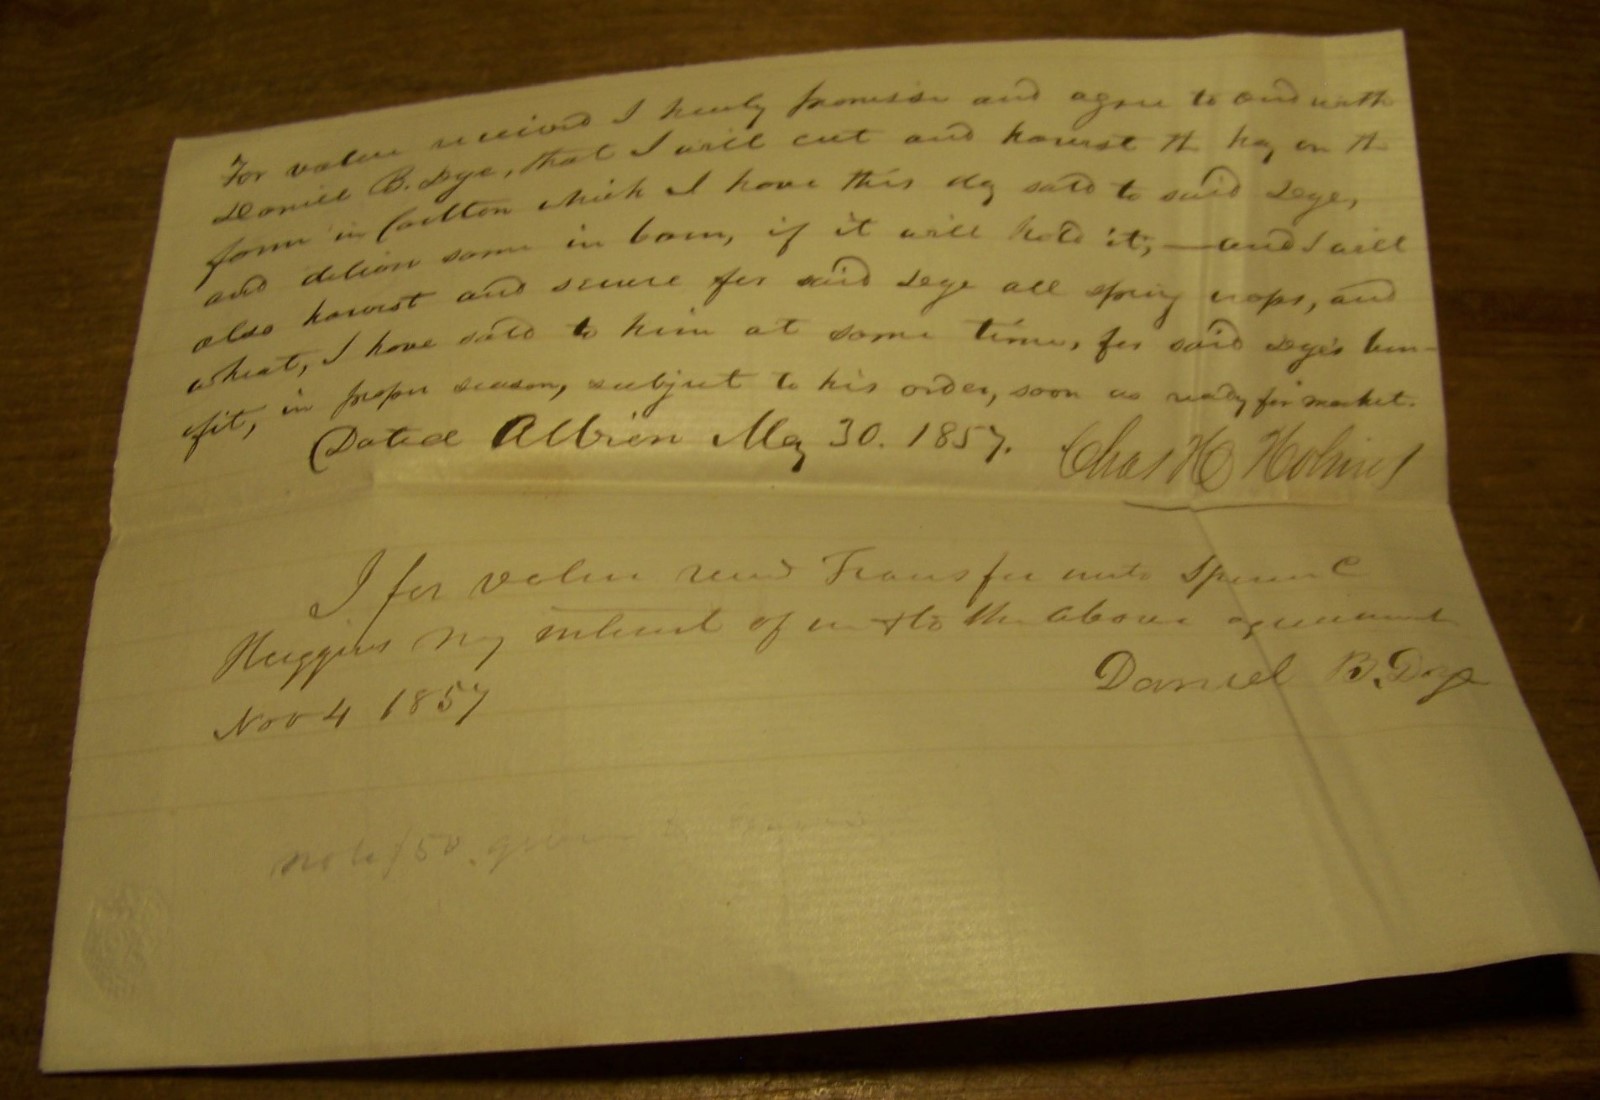 For value received I hereby promise and agree to and with
Daniel B. Dye, that I will cut and harvest the hay on the
farm in Carlton which I have this day sold to said Dye,
and deliver same in barn, if it will hold it; — and I will
also harvest and secure for said Dye all spring crops, and
wheat, I have sold to him at same time, for said Dye's ben-
efit, in proper season, subject to his order, soon as ready for market.
Dated Albion May 30. 1857. Chas H Holmes
I for value recd Transfer unto Spencer C
Huggins my interest of in & to the above agreement
Nov 4 1857 Daniel B. Dye
note 150. given